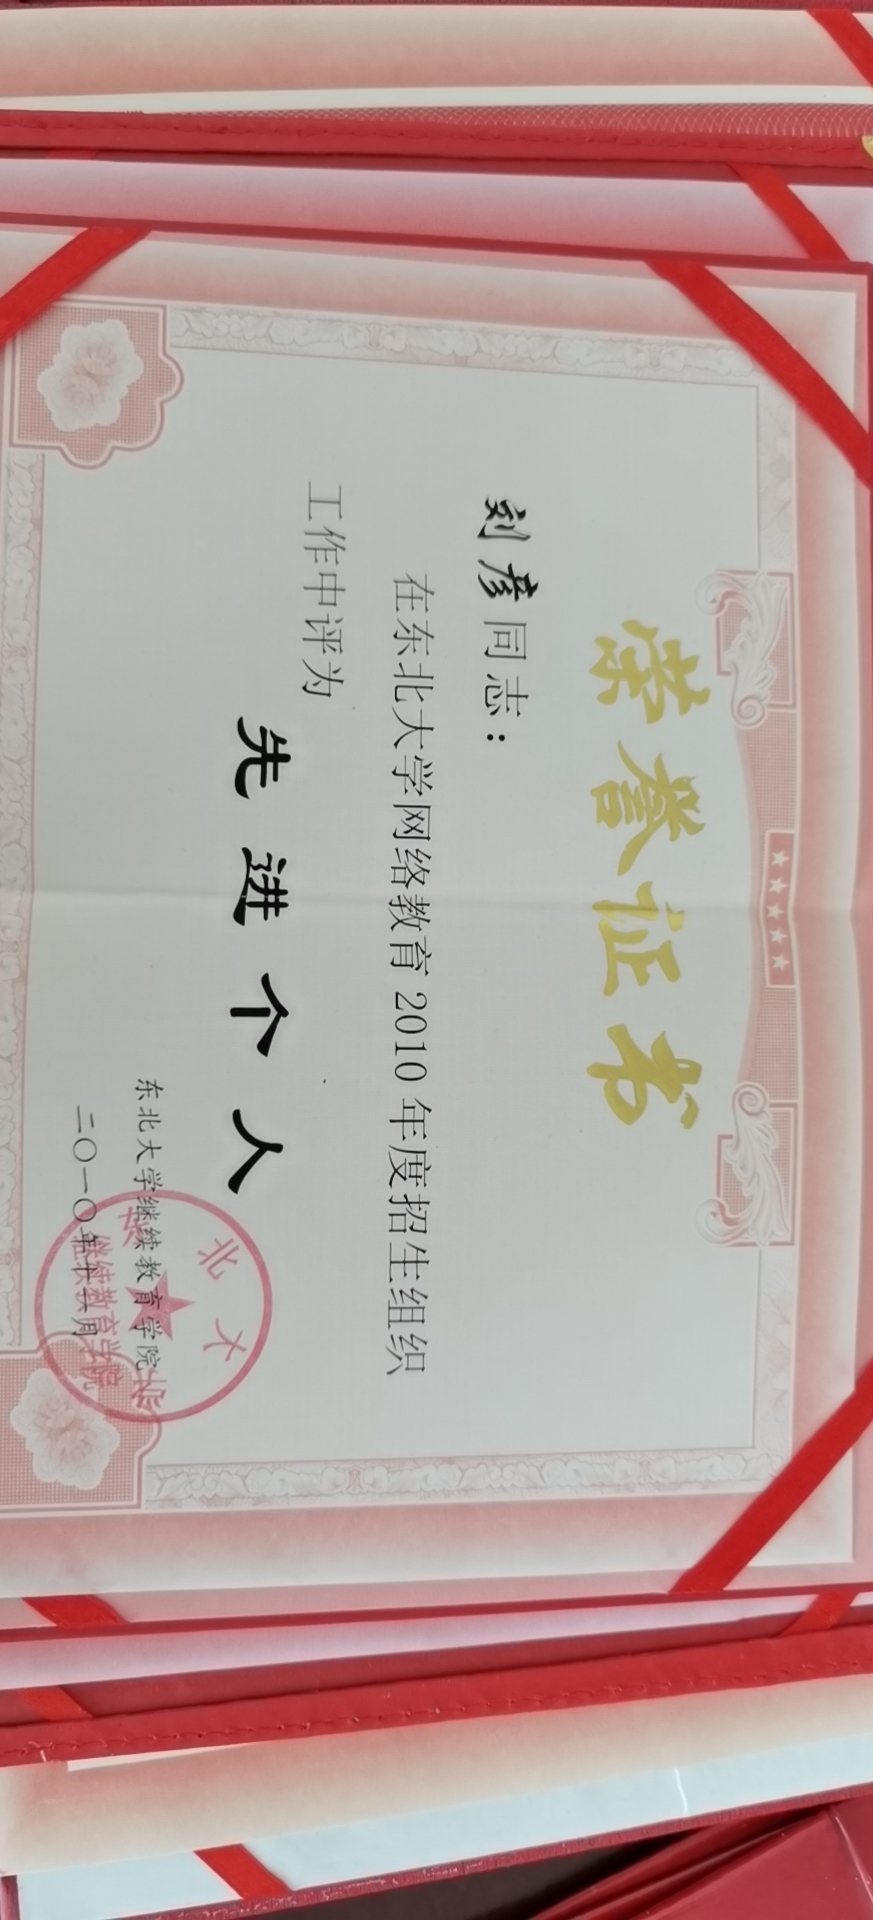 荣誉证书
刘彦同志：
在东北大学网络教育2010年度招生组织
工作中评为
先进个人
东北大学继续教育学院
二〇一〇年十二月
东北大学
继续教育学院